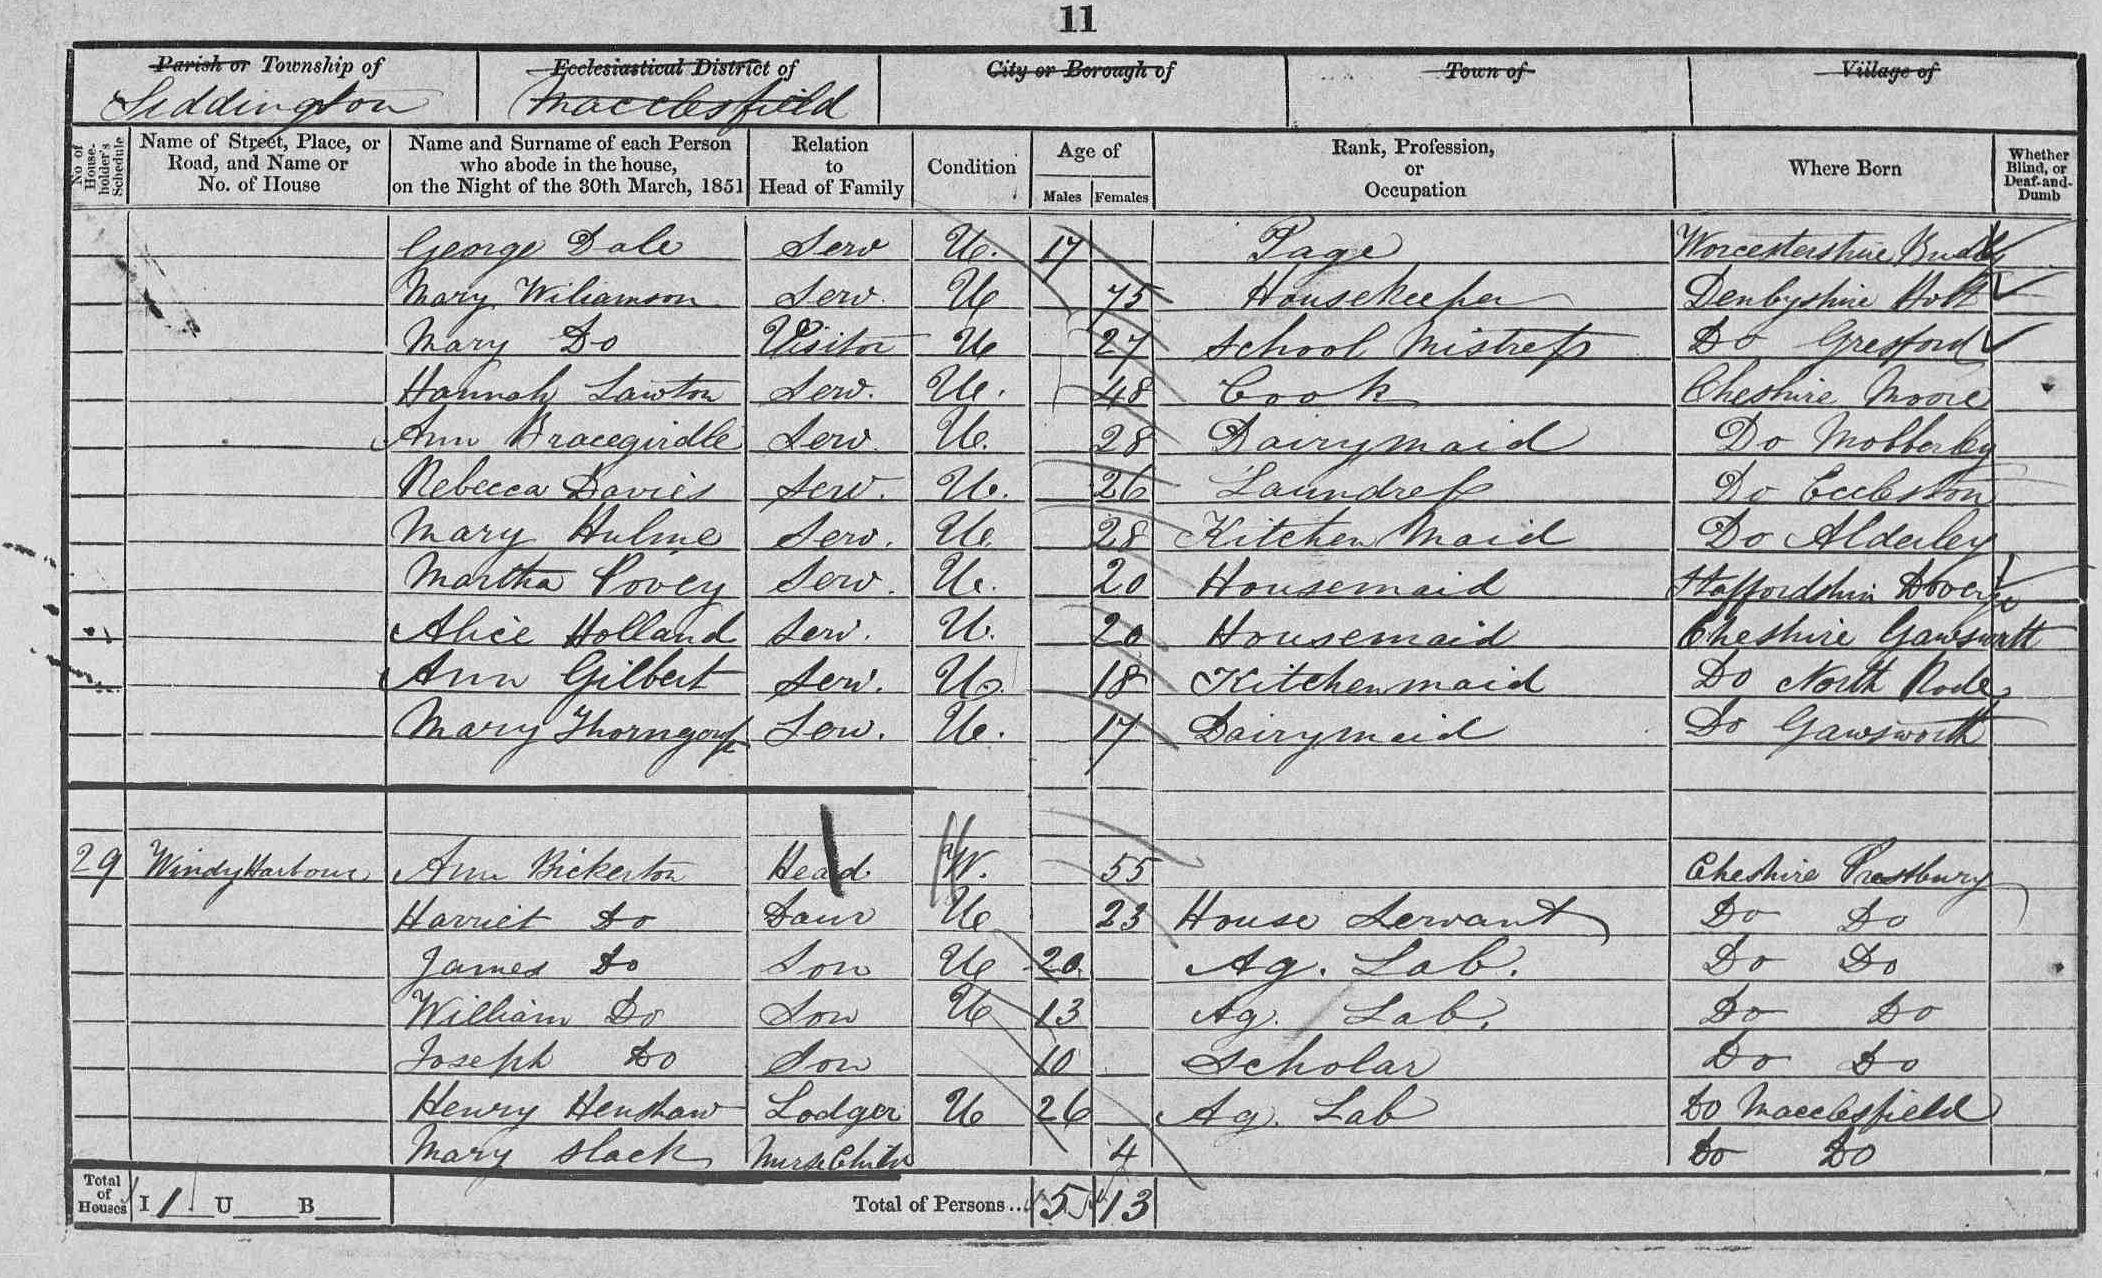 11
Parish or Township of Ecclesiastical District of City or Borough of Town of Village of
Siddington Macclesfield
No of House-holder's Schedule Name of Street, Place, or Road, and Name or No. of House Name and Surname of each Person who abode in the house, on the Night of the 30th March, 1851 Relation to Head of Family Condition Age of Males Females Rank, Profession, or Occupation Where Born Whether Blind, or Deaf-and-Dumb
George Dale Serv U. 17 Page Worcestershire
Mary Wiliamson Serv. U 75 Housekeeper Denbyshire Holt
Mary Do Visitor U 27 School Mistress Do Gresford
Hannah Lawton Serv. U. 48 Cook Cheshire Moore
Ann Bracegirdle Serv. U. 28 Dairymaid Do Mobberley
Rebecca Davies Serv. U. 26 Laundress Do Eccleston
Mary Hulme Serv. U 28 Kitchen Maid Do Alderley
Martha Povey Serv. U. 20 Housemaid Staffordshire
Alice Holland Serv. U. 20 Housemaid Cheshire Gawsworth
Ann Gilbert Serv. U. 18 Kitchenmaid Do North Rode
Mary Serv. U. 17 Dairymaid Do Gawsworth
29 Windy Harbour Ann Bickerton Head W. 55 Cheshire Prestbury
Harriet Do Daur U 23 House Servant Do Do
James Do Son U 20 Ag. Lab. Do Do
William Do Son U 13 Ag. Lab. Do Do
Joseph Do Son 10 Scholar Do Do
Henry Henshaw Lodger U 26 Ag. Lab Do Macclesfield
Mary Slack Nurse Child 4 Do Do
Total of Houses I 1 U B Total of Persons... 5 13